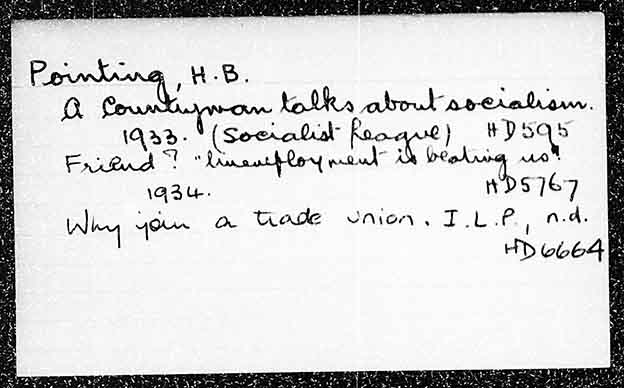 Pointing, H.B.
A Countryman talks about socialism.
1933. (Socialist League) HD595
Friend? "Unemployment is beating us".
1934. HD5767
Why join a trade union. I.L.P., n.d.
HD6664